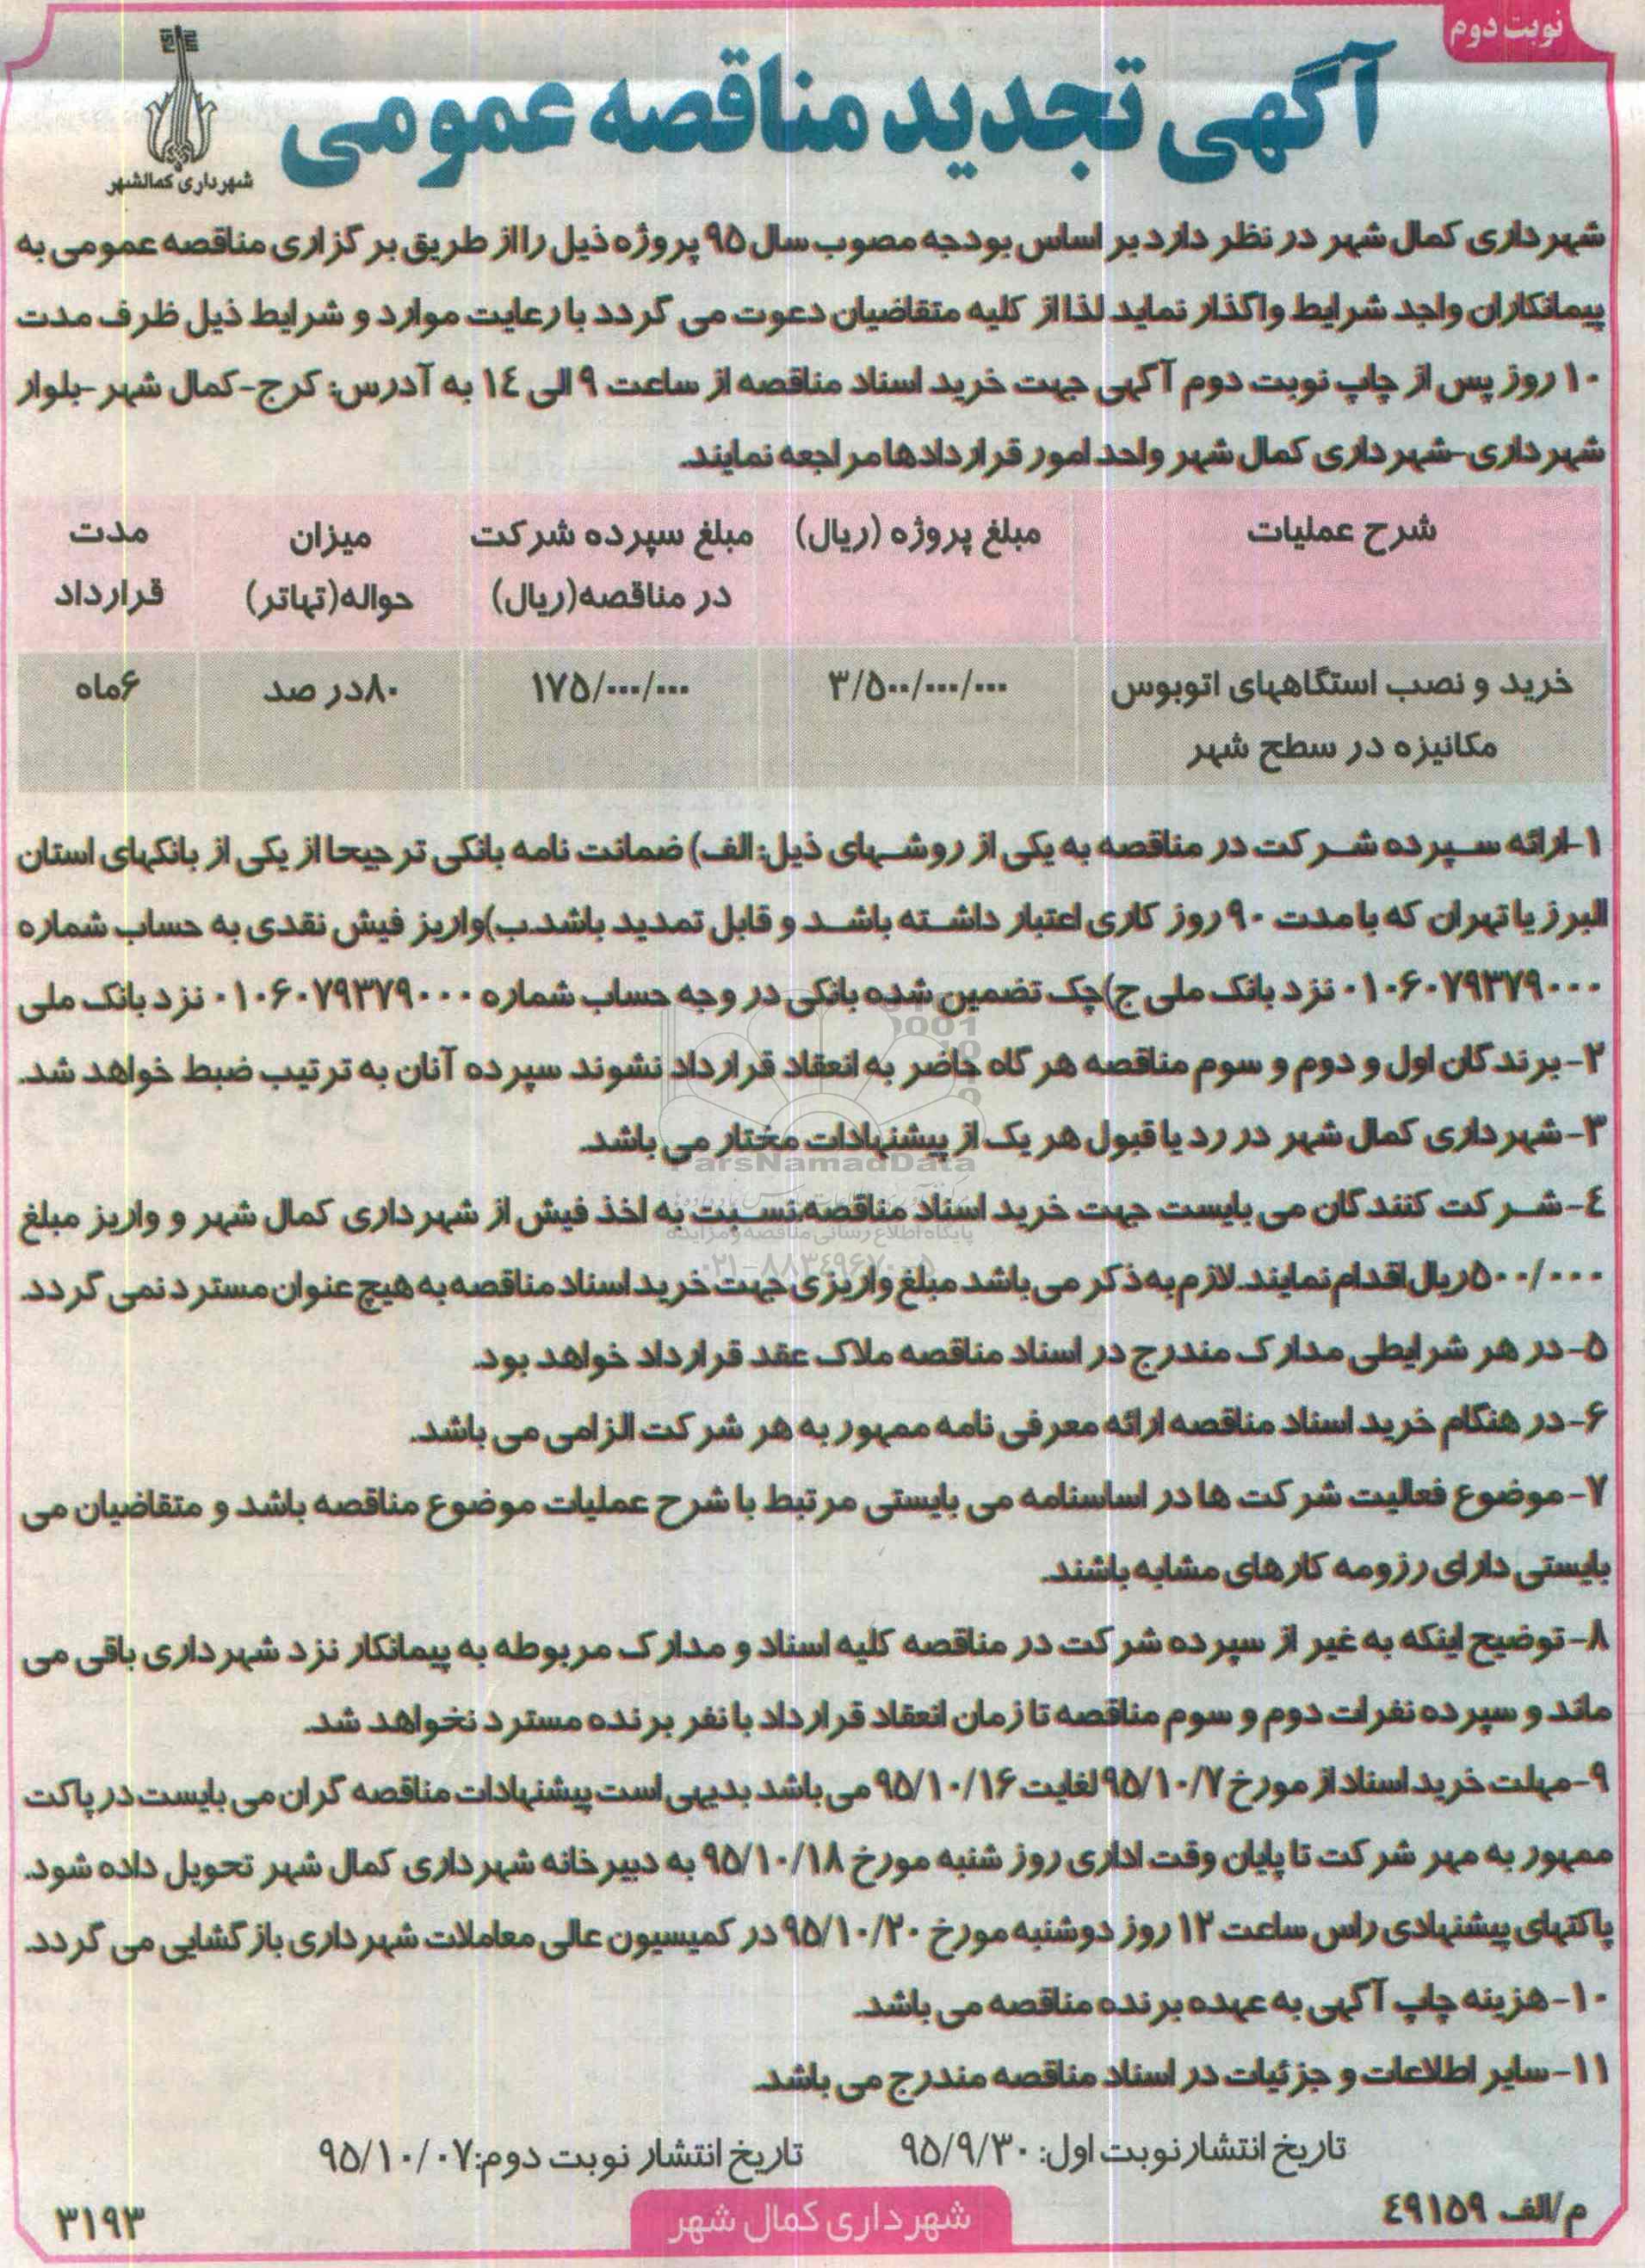 نوبت دوم
آگهی تجدید مناقصه عمومی
شهرداری کمالشهر
شهرداری کمال شهر در نظر دارد بر اساس بودجه مصوب سال ۹۵ پروژه ذیل را از طریق برگزاری مناقصه عمومی به
پیمانکاران واجد شرایط واگذار نماید لذا از کلیه متقاضیان دعوت می گردد با رعایت موارد و شرایط ذیل ظرف مدت
۱۰ روز پس از چاپ نوبت دوم آگهی جهت خرید اسناد مناقصه از ساعت ۹ الی ۱٤ به آدرس: کرج-کمال شهر-بلوار
شهرداری-شهرداری کمال شهر واحد امور قراردادها مراجعه نمایند.
شرح عملیات مبلغ پروژه (ریال) مبلغ سپرده شرکت میزان مدت
در مناقصه(ریال) حواله(تهاتر) قرارداد
خرید و نصب استگاههای اتوبوس ۳/۵۰۰/۰۰۰/۰۰۰ ۱۷۵/۰۰۰/۰۰۰ ۸۰در صد ۶ماه
مکانیزه در سطح شهر
۱-ارائه سپرده شرکت در مناقصه به یکی از روشهای ذیل: الف) ضمانت نامه بانکی ترجیحا از یکی از بانکهای استان
البرز یا تهران که با مدت ۹۰ روز کاری اعتبار داشته باشد و قابل تمدید باشد.ب)واریز فیش نقدی به حساب شماره
۰۱۰۶۰۷۹۳۷۹۰۰۰ نزد بانک ملی ج)چک تضمین شده بانکی در وجه حساب شماره ۰۱۰۶۰۷۹۳۷۹۰۰۰ نزد بانک ملی
۲-برندگان اول و دوم و سوم مناقصه هر گاه حاضر به انعقاد قرارداد نشوند سپرده آنان به ترتیب ضبط خواهد شد.
۳-شهرداری کمال شهر در رد یا قبول هر یک از پیشنهادات مختار می باشد.
ParsNamadData
٤-شرکت کنندگان می بایست جهت خرید اسناد مناقصه نسبت به اخذ فیش از شهرداری کمال شهر و واریز مبلغ
پایگاه اطلاع رسانی مناقصه و مزایده
۰۲۱-۸۸۳٤۹۶۷۰-۵
۵۰۰/۰۰۰ریال اقدام نمایند. لازم به ذکر می باشد مبلغ واریزی جهت خرید اسناد مناقصه به هیچ عنوان مسترد نمی گردد.
۵-در هر شرایطی مدارک مندرج در اسناد مناقصه ملاک عقد قرارداد خواهد بود.
۶-در هنگام خرید اسناد مناقصه ارائه معرفی نامه ممهور به هر شرکت الزامی می باشد.
۷-موضوع فعالیت شرکت ها در اساسنامه می بایستی مرتبط با شرح عملیات موضوع مناقصه باشد و متقاضیان می
بایستی دارای رزومه کارهای مشابه باشند.
۸-توضیح اینکه به غیر از سپرده شرکت در مناقصه کلیه اسناد و مدارک مربوطه به پیمانکار نزد شهرداری باقی می
ماند و سپرده نفرات دوم و سوم مناقصه تا زمان انعقاد قرارداد با نفر برنده مسترد نخواهد شد.
۹-مهلت خرید اسناد از مورخ ۹۵/۱۰/۷ لغایت ۹۵/۱۰/۱۶ می باشد بدیهی است پیشنهادات مناقصه گران می بایست در پاکت
ممهور به مهر شرکت تا پایان وقت اداری روز شنبه مورخ ۹۵/۱۰/۱۸ به دبیرخانه شهرداری کمال شهر تحویل داده شود.
پاکتهای پیشنهادی راس ساعت ۱۲ روز دوشنبه مورخ ۹۵/۱۰/۲۰ در کمیسیون عالی معاملات شهرداری بازگشایی می گردد.
۱۰-هزینه چاپ آگهی به عهده برنده مناقصه می باشد.
۱۱-سایر اطلاعات و جزئیات در اسناد مناقصه مندرج می باشد.
تاریخ انتشار نوبت اول: ۹۵/۹/۳۰ تاریخ انتشار نوبت دوم:۹۵/۱۰/۰۷
م/الف ٤۹۱۵۹
شهرداری کمال شهر
۳۱۹۳